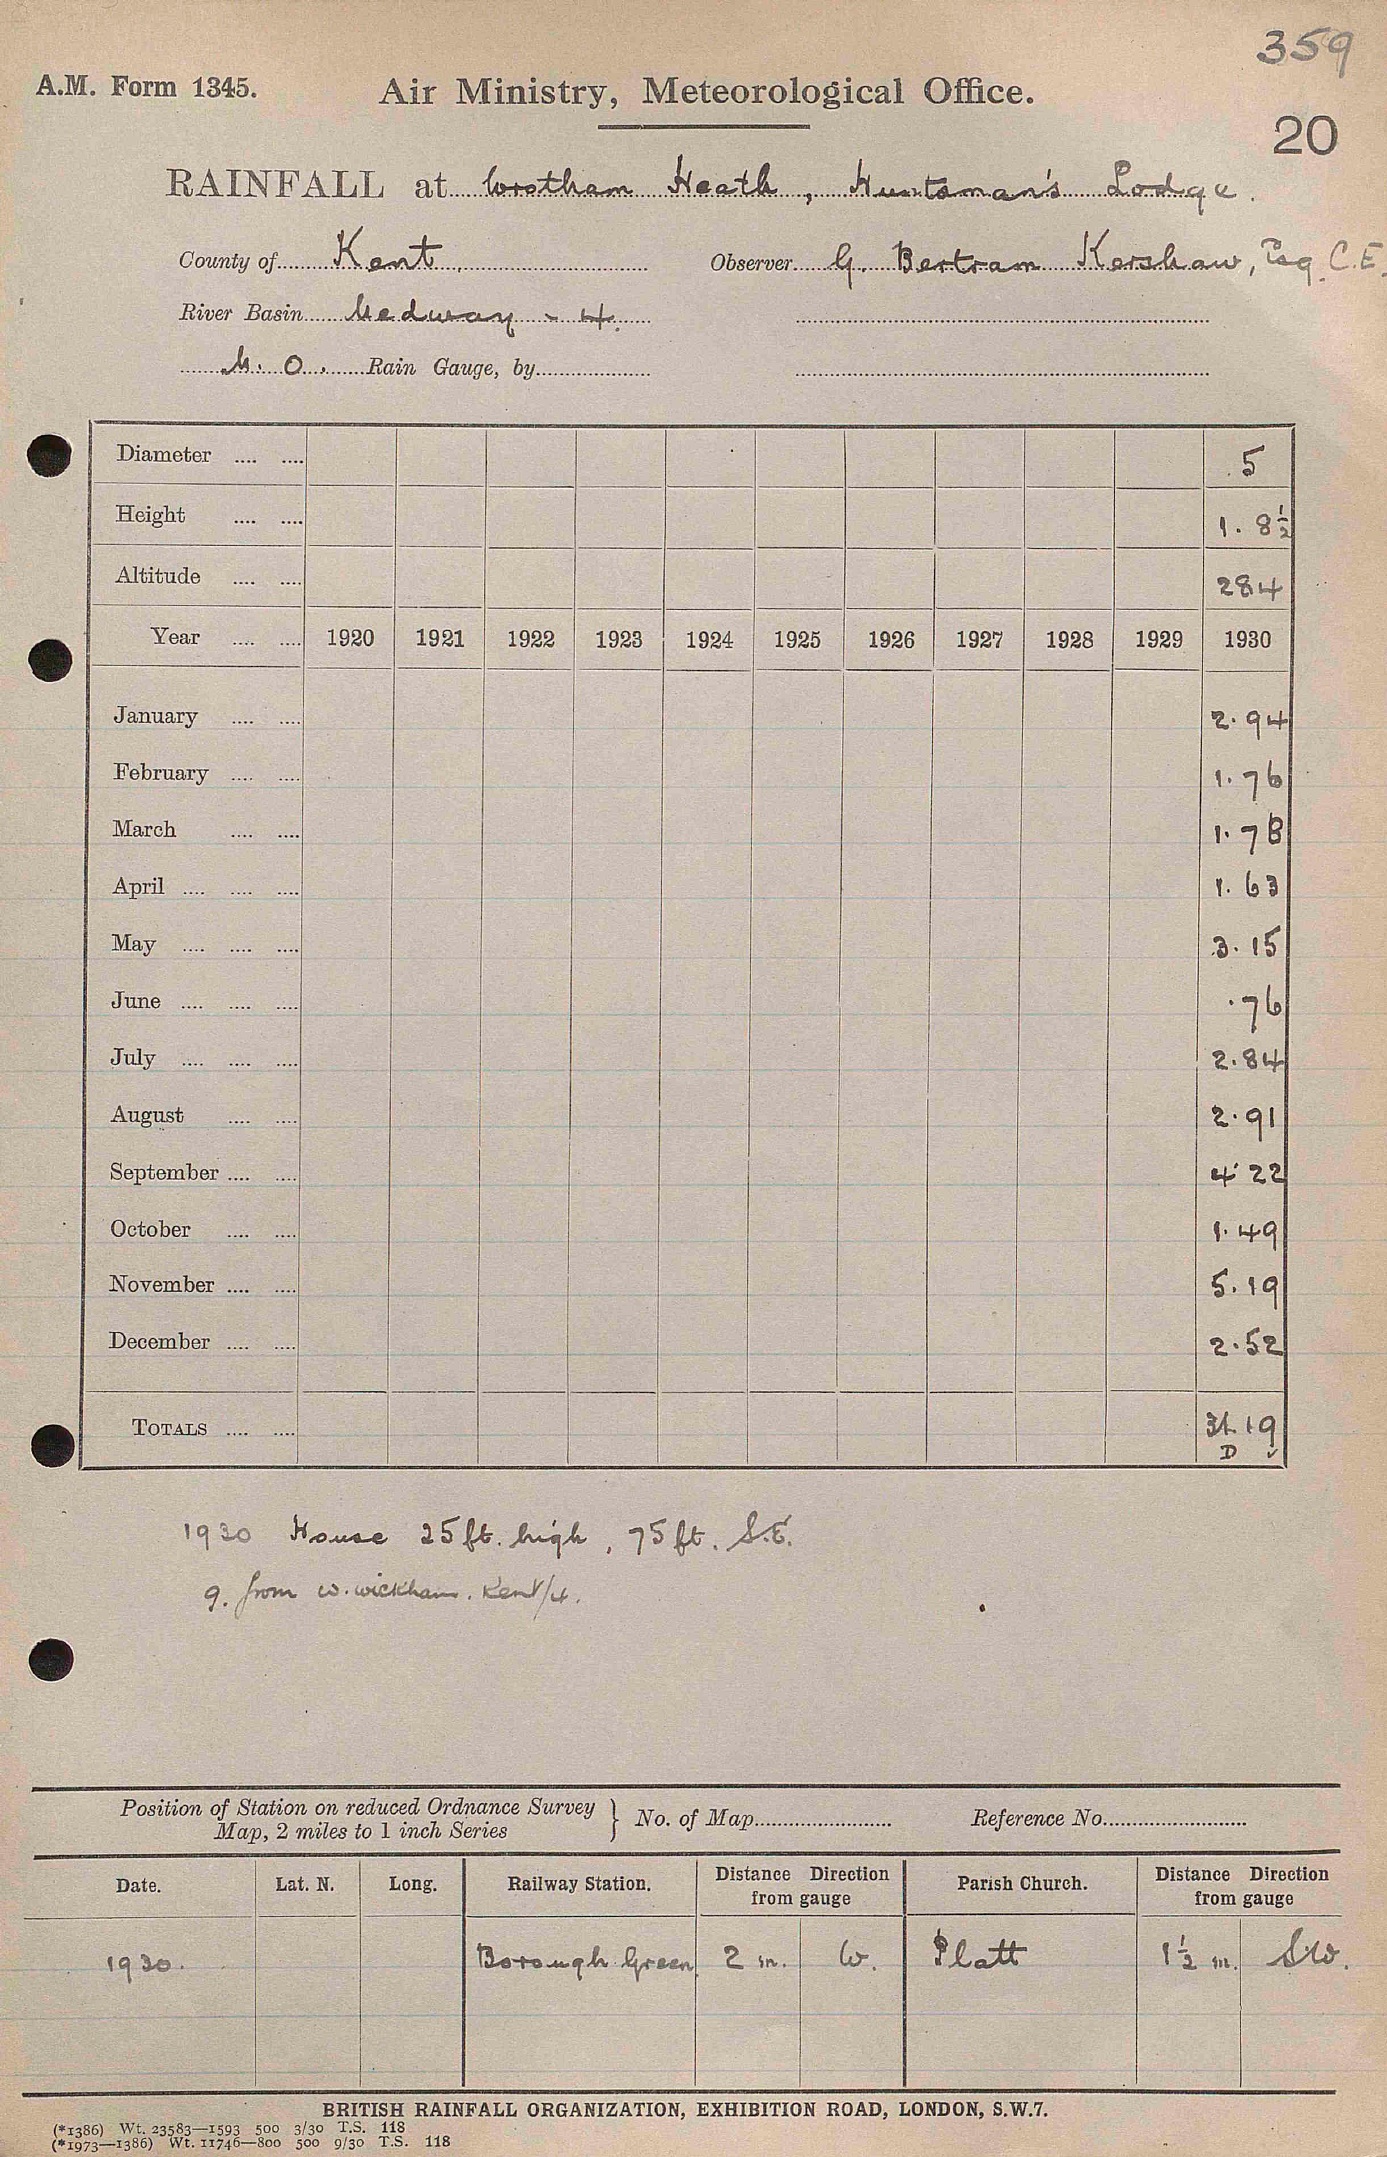 359
A.M. Form 1345. Air Ministry, Meteorological Office.
20
RAINFALL at Wrotham Heath, Huntsman's Lodge.
County of Kent. Observer G. Bertram Kershaw, Esq. C.E.
River Basin Medway - 4.
M.O. Rain Gauge, by
Diameter .... .... 5
Height .... .... 1. 8½
Altitude .... .... 284
Year .... .... 1920 1921 1922 1923 1924 1925 1926 1927 1928 1929 1930
January .... .... 2.94
February .... .... 1.76
March .... .... 1.78
April .... .... .... 1.63
May .... .... .... 3.15
June .... .... .... .76
July .... .... .... 2.84
August .... .... 2.91
September .... .... 4.22
October .... .... 1.49
November .... .... 5.19
December .... .... 2.52
TOTALS .... .... 31.19
D ✓
1930 House 25 ft. high, 75 ft. S.E.
g. from W. Wickham. Kent/4.
Position of Station on reduced Ordnance Survey Map, 2 miles to 1 inch Series } No. of Map Reference No.
Date. Lat. N. Long. Railway Station. Distance Direction from gauge Parish Church. Distance Direction from gauge
1930. Borough Green 2 m. W. Platt 1½ m. SW.
BRITISH RAINFALL ORGANIZATION, EXHIBITION ROAD, LONDON, S.W.7.
(*1386) Wt. 23583—1593 500 3/30 T.S. 118
(*1973—1386) Wt. 11746—800 500 9/30 T.S. 118